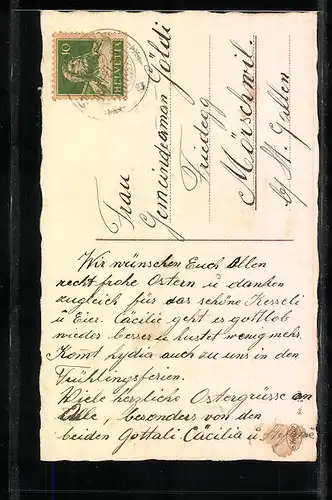 10
HELVETIA
Frau
Gemeindeaman Göldi
Friedegg
Mörschwil.
b/ St. Gallen
Wir wünschen Euch Allen
recht frohe Ostern u danken
zugleich für das schöne Kesseli
u Eier. Cäcilie geht es gottlob
wieder besser u hustet wenig mehr.
Komt Lydia auch zu uns in den
Frühlingsferien.
Viele herzliche Ostergrüsse an
Alle, besonders von den
beiden Gottali Cäcilia u